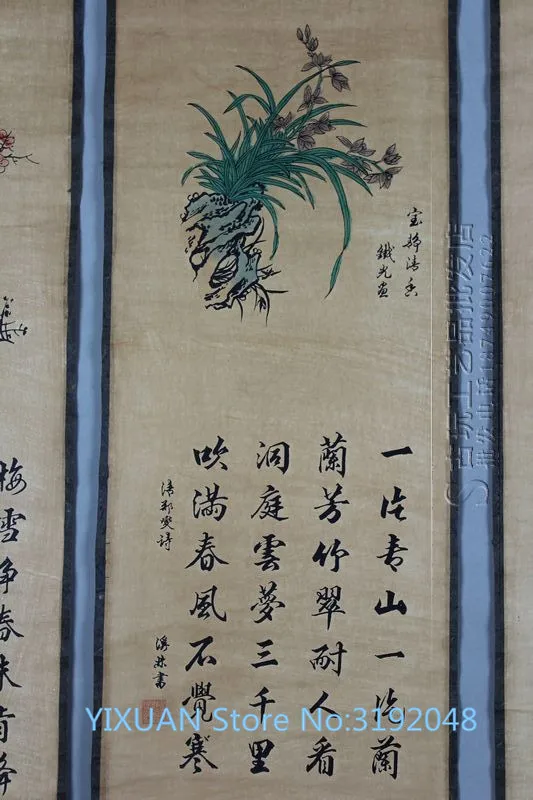 室静清香
鐵光画
一片青山一片蘭
蘭芳竹翠耐人看
洞庭雲夢三千里
吹滿春風不覺寒
清鄭燮詩
書
梅雪争春未肯降
古玩工艺品批发店
YIXUAN Store No:3192048